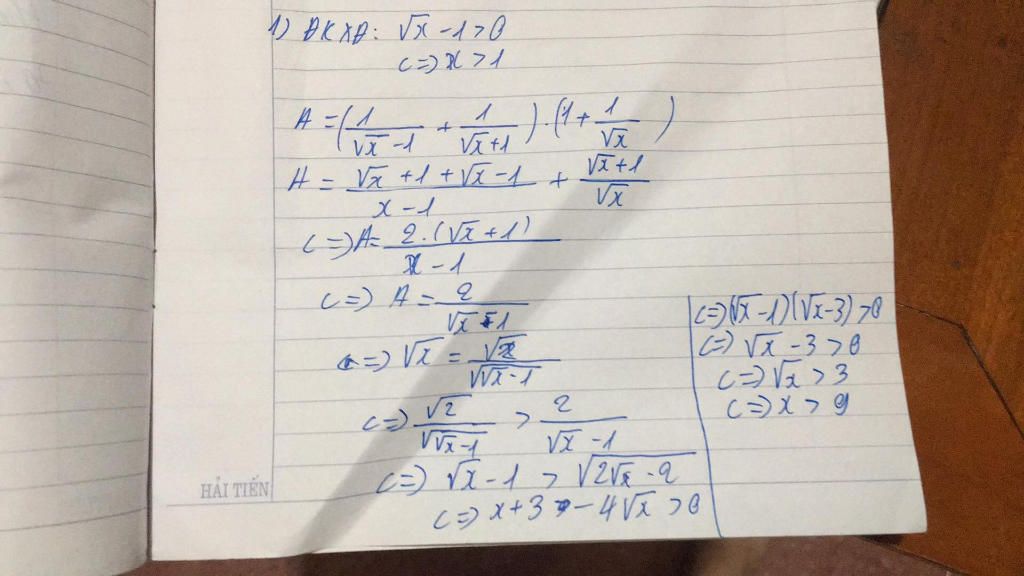 1) ĐKXĐ: √x - 1 > 0
<=> x > 1
A = (1/(√x - 1) + 1/(√x + 1)) . (1 + 1/√x)
A = (√x + 1 + √x - 1)/(x - 1) + (√x + 1)/√x
<=> A = 2.(√x + 1)/(x - 1)
<=> A = 2/(√x - 1)
<=> √x = √2/√(√x - 1)
<=> √2/√(√x - 1) > 2/(√x - 1)
<=> √x - 1 > √(2√x - 2)
<=> x + 3 - 4√x > 0
<=> (√x - 1)(√x - 3) > 0
<=> √x - 3 > 0
<=> √x > 3
<=> x > 9
HẢI TIẾN